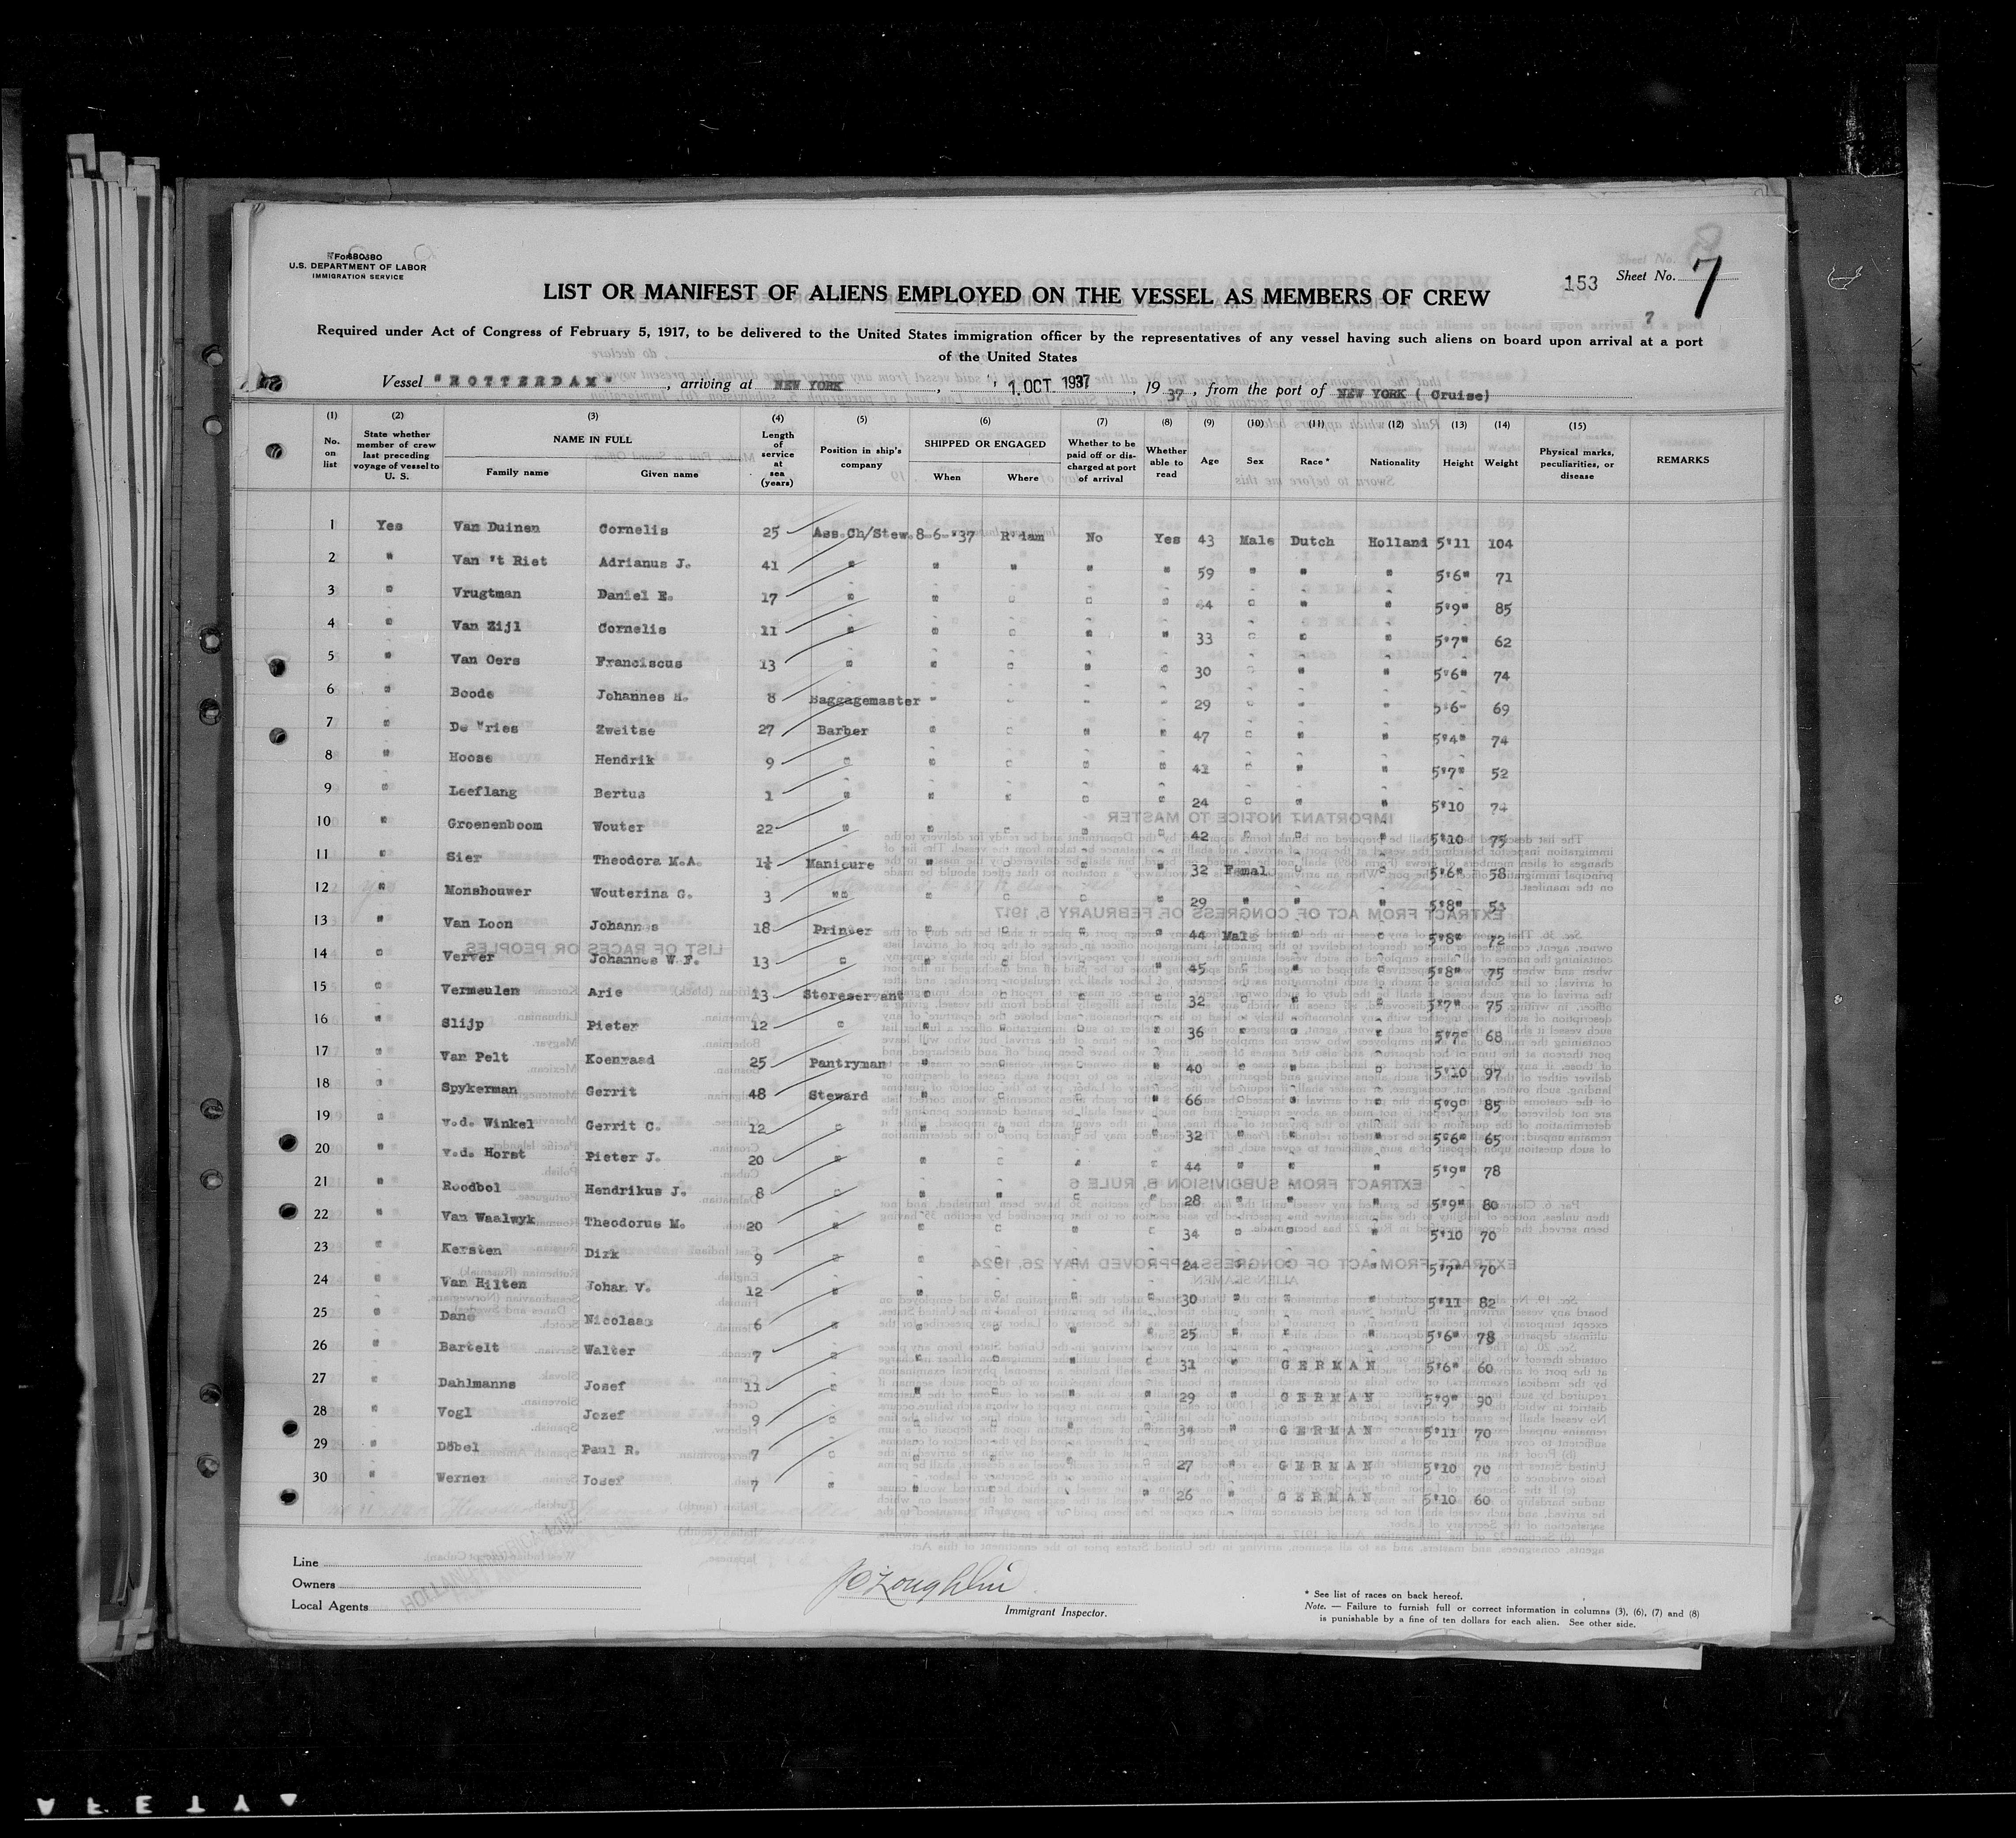 U.S. DEPARTMENT OF LABOR
IMMIGRATION SERVICE
153 Sheet No. 7
LIST OR MANIFEST OF ALIENS EMPLOYED ON THE VESSEL AS MEMBERS OF CREW
7
Required under Act of Congress of February 5, 1917, to be delivered to the United States immigration officer by the representatives of any vessel having such aliens on board upon arrival at a port
of the United States
Vessel "ROTTERDAM", arriving at NEW YORK, 1. OCT 1937, 19 37, from the port of NEW YORK ( Cruise)
(1) (2) (3) (4) (5) (6) (7) (8) (9) (10) (11) (12) (13) (14) (15)
No. on list State whether member of crew last preceding voyage of vessel to U. S. NAME IN FULL Family name Given name Length of service at sea (years) Position in ship's company SHIPPED OR ENGAGED When Where Whether to be paid off or discharged at port of arrival Whether able to read Age Sex Race * Nationality Height Weight Physical marks, peculiarities, or disease REMARKS
1 Yes Van Duinen Cornelis 25 Ass.Ch/Stew. 8-6-'37 R'dam No Yes 43 Male Dutch Holland 5'11 104
2 " Van 't Riet Adrianus J. 41 " " " " " 59 " " " 5'6" 71
3 " Vrugtman Daniel E. 17 " " " " " 44 " " " 5'9" 85
4 " Van Zijl Cornelis 11 " " " " " 33 " " " 5'7" 62
5 " Van Oers Franciscus 13 " " " " " 30 " " " 5'6" 74
6 " Boode Johannes H. 8 Baggagemaster " " " " 29 " " " 5'6" 69
7 " De Vries Zweitse 27 Barber " " " " 47 " " " 5'4" 74
8 " Hoose Hendrik 9 " " " " " 41 " " " 5'7" 52
9 " Leeflang Bertus 1 " " " " " 24 " " " 5'10 74
10 " Groenenboom Wouter 22 " " " " " 42 " " " 5'10 75
11 " Sier Theodora M.A. 1½ Manicure " " " " 32 Femal " " 5'6" 58
12 " Monshouwer Wouterina G. 3 "" " " " " 29 " " " 5'8"
13 " Van Loon Johannes 18 Printer " " " " 44 Male " " 5'8" 72
14 " Verver Johannes W.F. 13 " " " " " 45 " " " 5'8" 75
15 " Vermeulen Arie 13 Storeservant " " " " 32 " " " 5'7" 75
16 " Slijp Pieter 12 " " " " " 36 " " " 5'7" 68
17 " Van Pelt Koenraad 25 Pantryman " " " " 40 " " " 5'10 97
18 " Spykerman Gerrit 48 Steward " " " " 66 " " " 5'9" 85
19 " v.d. Winkel Gerrit C. 12 " " " " " 32 " " " 5'6" 65
20 " v.d. Horst Pieter J. 20 " " " " " 44 " " " 5'9" 78
21 " Roodbol Hendrikus J. 8 " " " " " 28 " " " 5'9" 80
22 " Van Waalwyk Theodorus M. 20 " " " " " 34 " " " 5'10 70
23 " Kersten Dirk 9 " " " " " 24 " " " 5'7" 70
24 " Van Hilten Johan V. 12 " " " " " 30 " " " 5'11 82
25 " Dane Nicolaas 6 " " " " " 25 " " " 5'6" 78
26 " Bartelt Walter 7 " " " " " 31 " GERMAN 5'6" 60
27 " Dahlmanns Josef 11 " " " " " 29 " GERMAN 5'9" 90
28 " Vogl Jozef 9 " " " " " 34 " GERMAN 5'11 70
29 " Döbel Paul R. 7 " " " " " 27 " GERMAN 5'10 70
30 " Werner Josef 7 " " " " " 26 " GERMAN 5'10 60
Line
Owners
Local Agents
Immigrant Inspector.
* See list of races on back hereof.
Note. — Failure to furnish full or correct information in columns (3), (6), (7) and (8)
is punishable by a fine of ten dollars for each alien. See other side.
AFETY